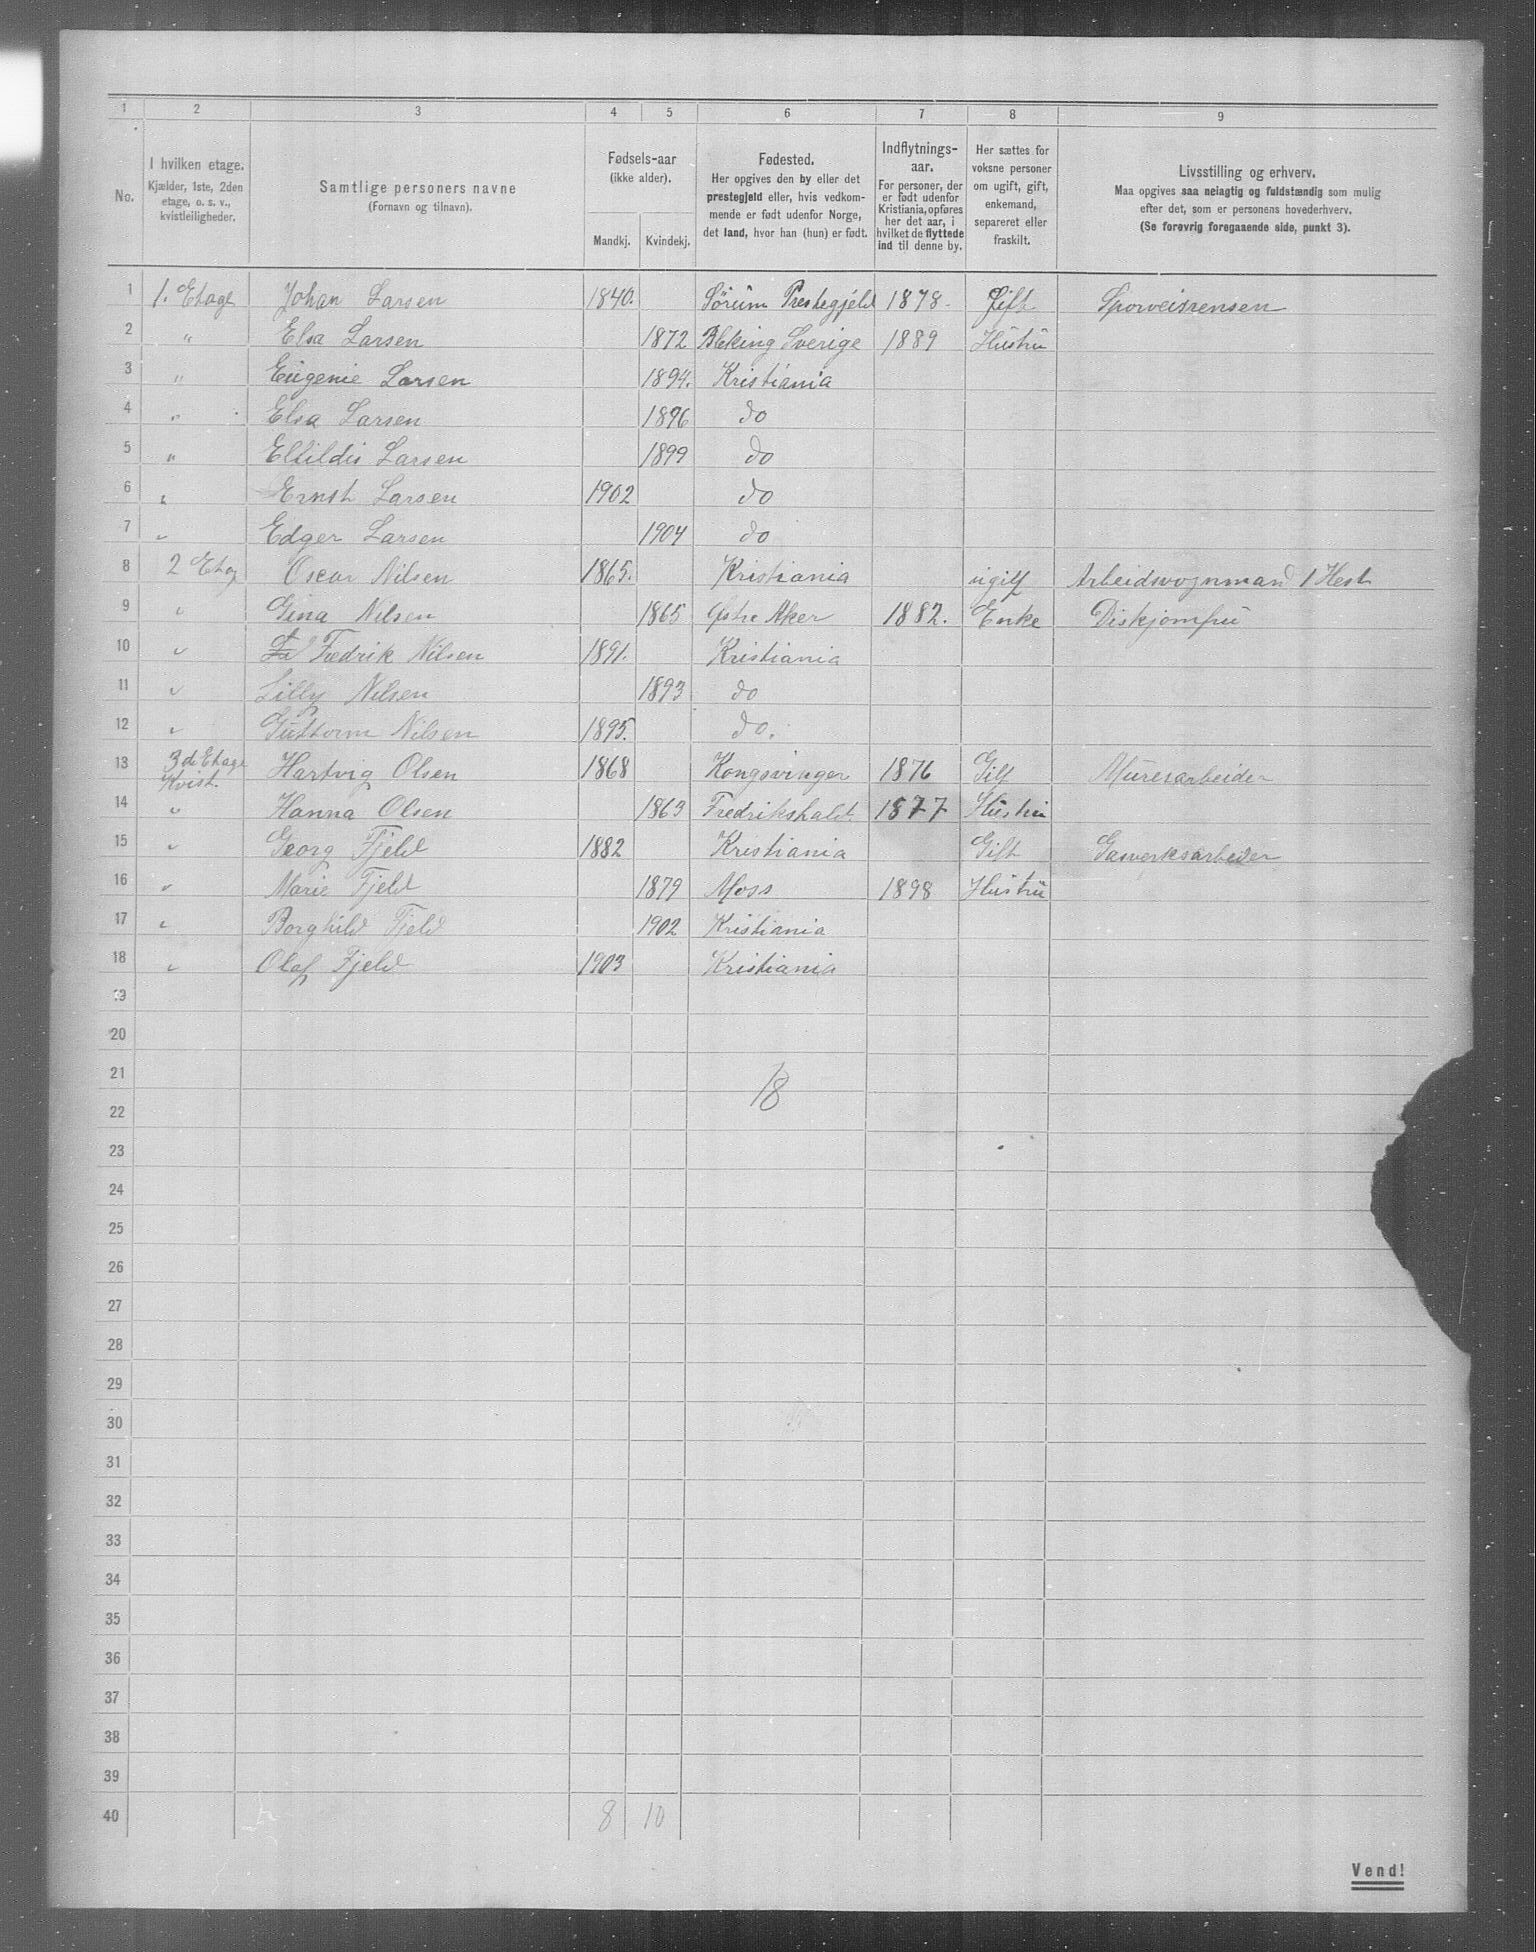 1 2 3 4 5 6 7 8 9
No.
I hvilken etage.
Kjælder, 1ste, 2den
etage, o. s. v.,
kvistleiligheder.
Samtlige personers navne
(Fornavn og tilnavn).
Fødsels-aar
(ikke alder).
Mandkj. Kvindekj.
Fødested.
Her opgives den by eller det
prestegjeld eller, hvis vedkom-
mende er født udenfor Norge,
det land, hvor han (hun) er født.
Indflytnings-
aar.
For personer, der
er født udenfor
Kristiania, opføres
her det aar, i
hvilket de flyttede
ind til denne by.
Her sættes for
voksne personer
om ugift, gift,
enkemand,
separeret eller
fraskilt.
Livsstilling og erhverv.
Maa opgives saa nøiagtig og fuldstændig som mulig
efter det, som er personens hovederhverv.
(Se forøvrig foregaaende side, punkt 3).
1 1. Etage Johan Larsen 1840. Sörum Prestegjeld 1878. Gift Sporveisrensen
2 " Elsa Larsen 1872 Bleking Sverige 1889 Hustru
3 " Eugenie Larsen 1894. Kristiania
4 " Elsa Larsen 1896 do
5 " Larsen 1899 do
6 " Ernst Larsen 1902 do
7 " Edger Larsen 1904 do
8 2 Etag Oscar Nilsen 1865. Kristiania ugift Arbeidsvognmand 1 Hest
9 " Gina Nilsen 1865 Østre Aker 1882. Enke Diskjomfru
10 " Fredrik Nilsen 1891. Kristiania
11 " Lilly Nilsen 1893 do
12 " Guttorm Nilsen 1895. do.
13 3de Etage Kvist. Hartvig Olsen 1868 Kongsvinger 1876 Gift Murerarbeider
14 " Hanna Olsen 1863 Fredrikshald. 1877 Hustru
15 " Georg Fjeld 1882 Kristiania Gift Gasverksarbeder
16 " Marie Fjeld 1879 Moss 1898 Hustru
17 " Borghild Fjeld 1902 Kristiania
18 " Olaf Fjeld 1903 Kristiania
19
20
21
18
22
23
24
25
26
27
28
29
30
31
32
33
34
35
36
37
38
39
40 8 10
Vend!